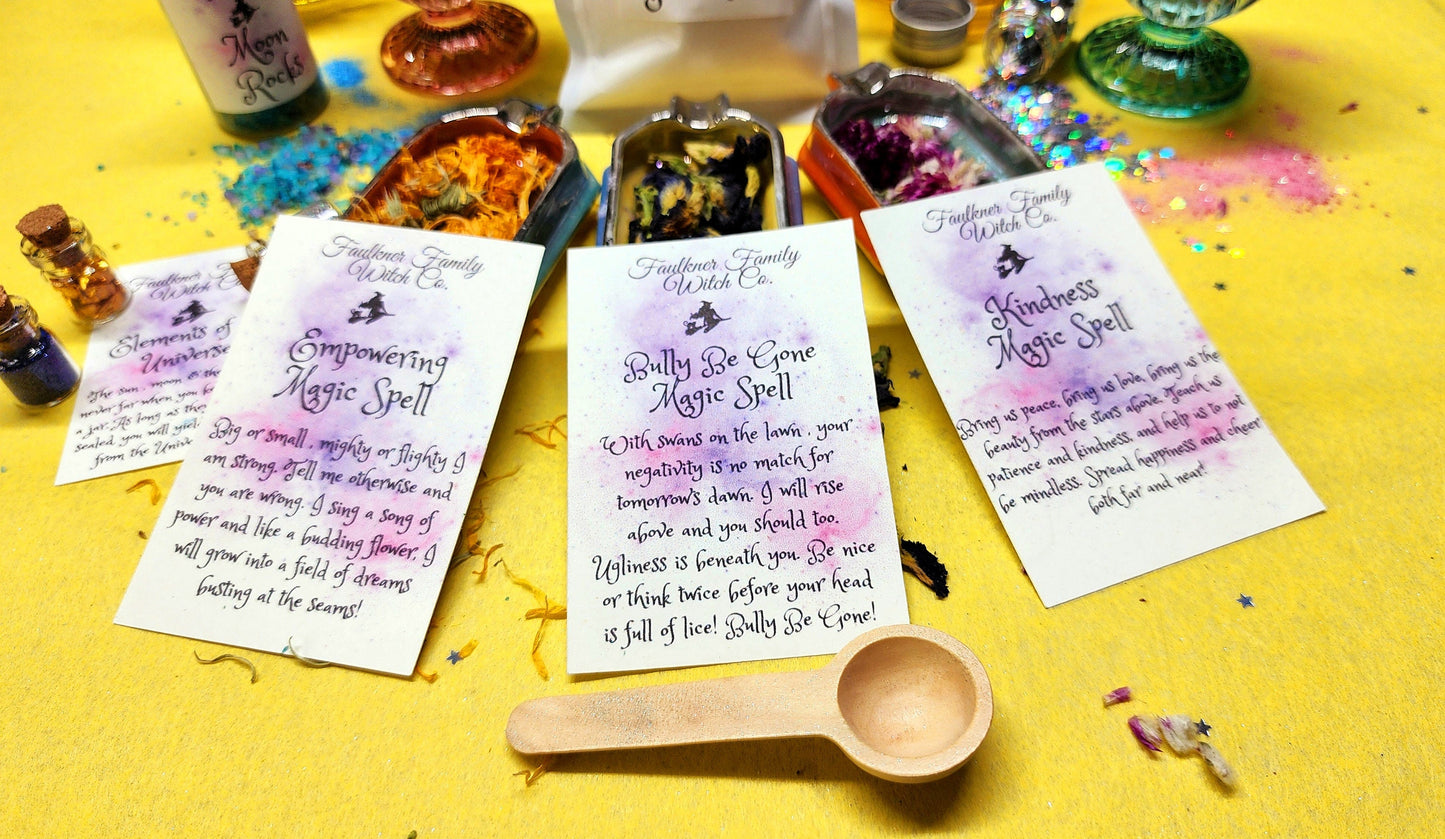 Moon
Rocks
Faulkner Family
Witch Co.
Elements of
Universe
The sun, moon & the
never far when you
a jar. As long as they
sealed, you will yield
from the Unive
Faulkner Family
Witch Co.
Empowering
Magic Spell
Big or small , mighty or flighty I
am strong. Tell me otherwise and
you are wrong. I sing a song of
power and like a budding flower, I
will grow into a field of dreams
busting at the seams!
Faulkner Family
Witch Co.
Bully Be Gone
Magic Spell
With swans on the lawn , your
negativity is no match for
tomorrow's dawn. I will rise
above and you should too.
Ugliness is beneath you. Be nice
or think twice before your head
is full of lice! Bully Be Gone!
Faulkner Family
Witch Co.
Kindness
Magic Spell
Bring us peace, bring us love, bring us the
beauty from the stars above. Teach us
patience and kindness, and help us to not
be mindless. Spread happiness and cheer
both far and near!